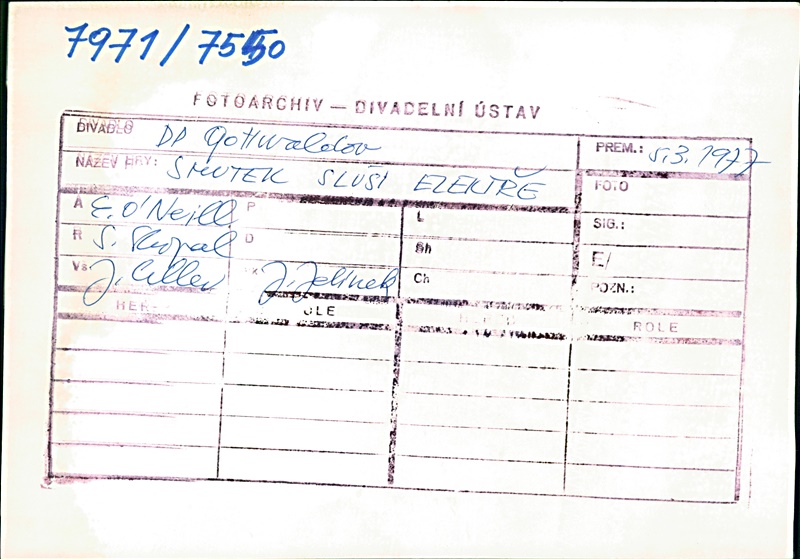 7971/7550
FOTOARCHIV — DIVADELNÍ ÚSTAV
DIVADLO DP Gottwaldov PREM.: 5.3.1977
NÁZEV HRY: SMUTEK SLUŠÍ ELEKTŘE FOTO
A E. O'Neill P L SIG.:
R S. Skopal D Sh E/
J. Jelínek Ch POZN.:
ROLE